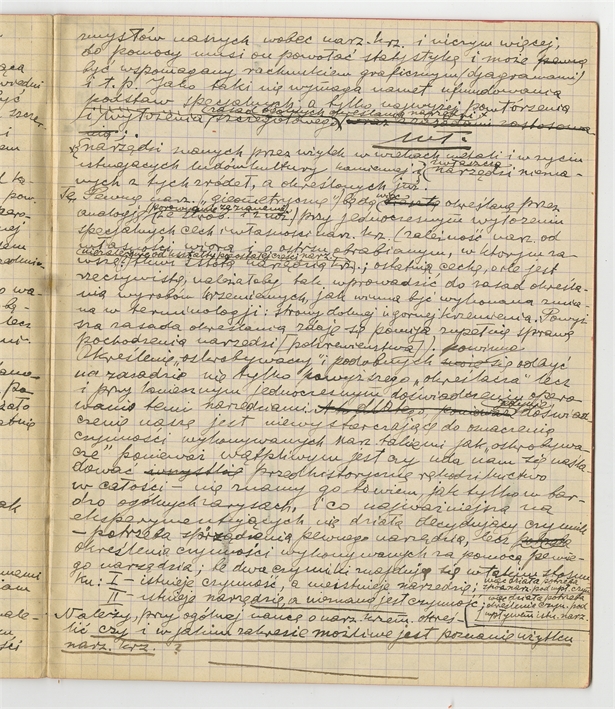 zmysłów naszych wobec narz. krz. i niczym więcej,
do pomocy musi on powołać statystykę i może
być wspomagany rachunkiem graficznym /dyagramami/
i t. p. jako taki nie wymaga nawet ufundowania
podstaw specjalnych, a tylko najwyżej powtórzenia
i wyłożenia szczegółowego
narzędzi znanych przez użytek w wiekach metali i w życiu
istniejących ludów kultury kamiennej i zwłaszcza narzędzi niema-
nych z tych źródeł, a określonych już.
Pewne narz. „geometryczne" będą określane przez
analogję przy jednoczesnym wyłożeniu
specjalnych cech i własności narz. krz. (zależność narz. od
własności wióra i ostrzem obrabianym, w którym za-
wsze narzędzia krz.; ostatnią cechę, o ile jest
rzeczywistą, należałoby tak wprowadzić do zasad określa-
nia wyrobów krzemiennych, jak winna być wykonana zmia-
na w terminologji: strony dolnej i górnej krzemienia. Powyż-
sza zasada określania zdaje się pomija zupełnie sprawę
pochodzenia narzędzi /pokrewieństwa/)
Określenie „ostrobywaczy" i podobnych się odbyć
na zasadzie nie tylko powyższego „określacza" lecz
i przy koniecznym jednoczesnym doświadczeniu opero-
wania temi narzędziami. doświad-
czenie nasze jest niewystarczające do oznaczenia
czynności wykonywanych narz. takiemi jak „ostrobywa-
cze" ponieważ wątpliwym jest czy uda nam się naśla-
dować przedhistoryczne rękodzielnictwo
w całości – nie znamy go bowiem, jak tylko w bar-
dzo ogólnych zarysach, i co najważniejsza na
eksperymentujących nie działa decydujący czynnik
– potrzeba sporządzenia pewnego narzędzia, lecz
określenia czynności wykonywanych za pomocą pewne-
go narzędzia; te dwa czynniki znajdują się w takim stosun-
ku: I – istnieje czynność, a nie istnieje narzędzie;
II – istnieje narzędzie, a nieznana jest czynność;
Należy, przy ogólnej nauce o narz. krzem. okreś-
lić czy i w jakim zakresie możliwe jest poznanie użytku
narz. krz. ?